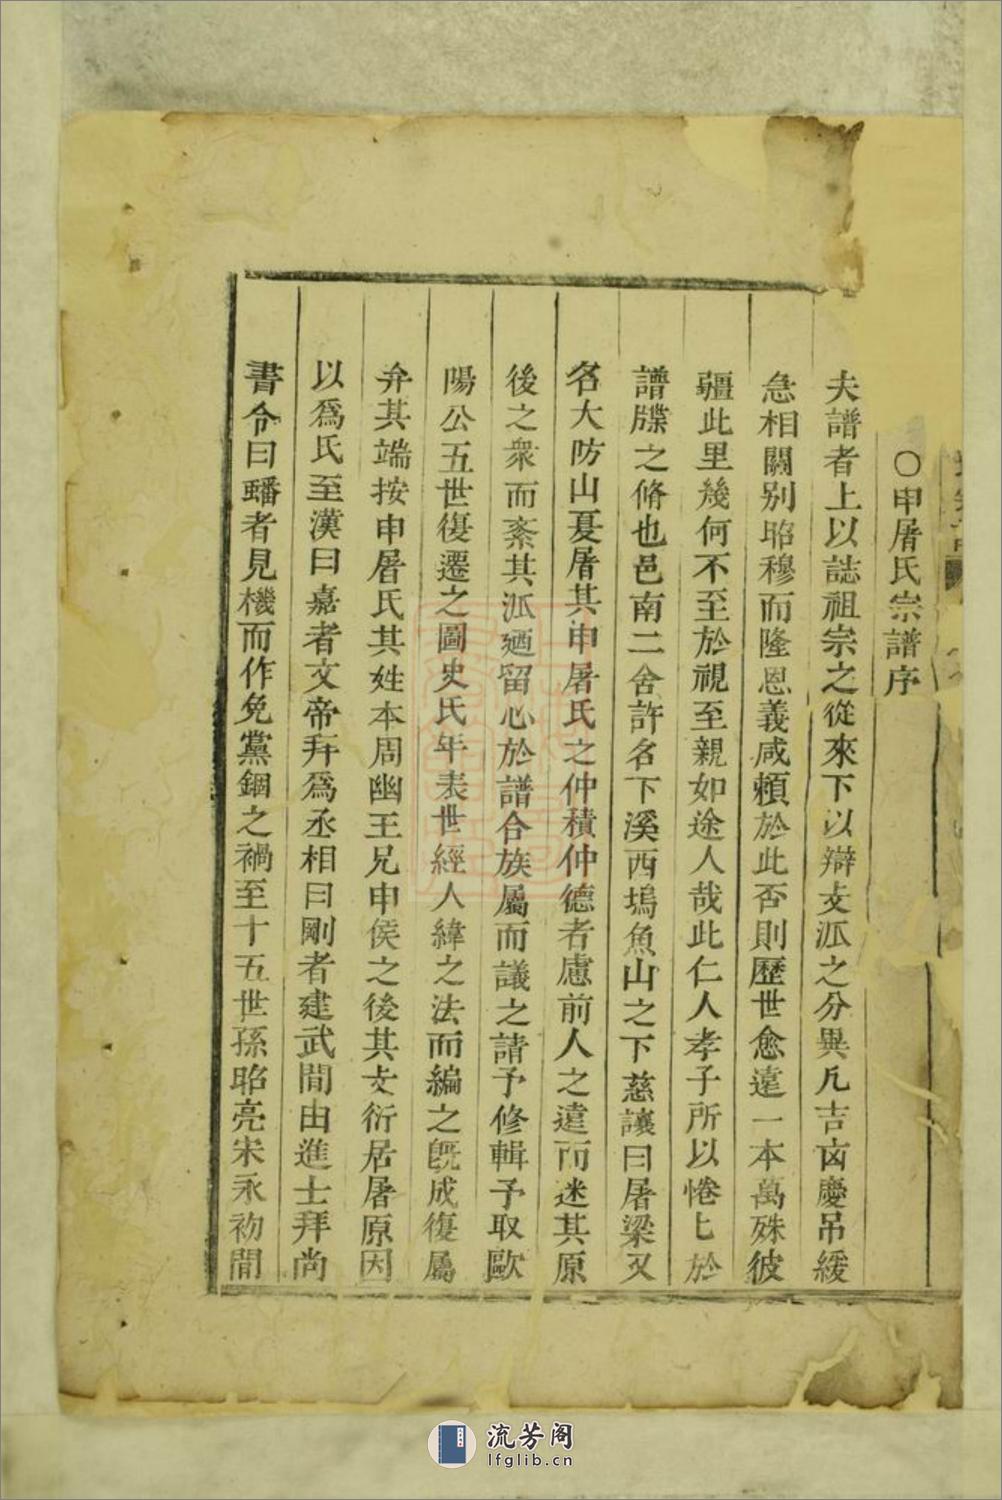 〇申屠氏宗譜序
夫譜者上以誌祖宗之從來下以辯支派之分異凡吉凶慶吊緩
急相關別昭穆而隆恩義咸頼於此否則歷世愈遠一本萬殊彼
疆此里幾何不至於視至親如途人哉此仁人孝子所以惓匕於
譜牒之脩也邑南二舍許名下溪西塢魚山之下慈讓曰屠梁又
名大防山夏屠其申屠氏之仲積仲德者慮前人之遠而迷其原
後之衆而紊其派廼留心於譜合族屬而議之請予修輯予取歐
陽公五世復遷之圖史氏年表世經人緯之法而編之旣成復屬
弁其端按申屠氏其姓本周幽王兄申侯之後其支衍居屠原因
以爲氏至漢曰嘉者文帝拜爲丞相曰剛者建武間由進士拜尚
書令曰蟠者見機而作免黨錮之禍至十五世孫昭亮宋永初間
流芳阁
lfglib.cn